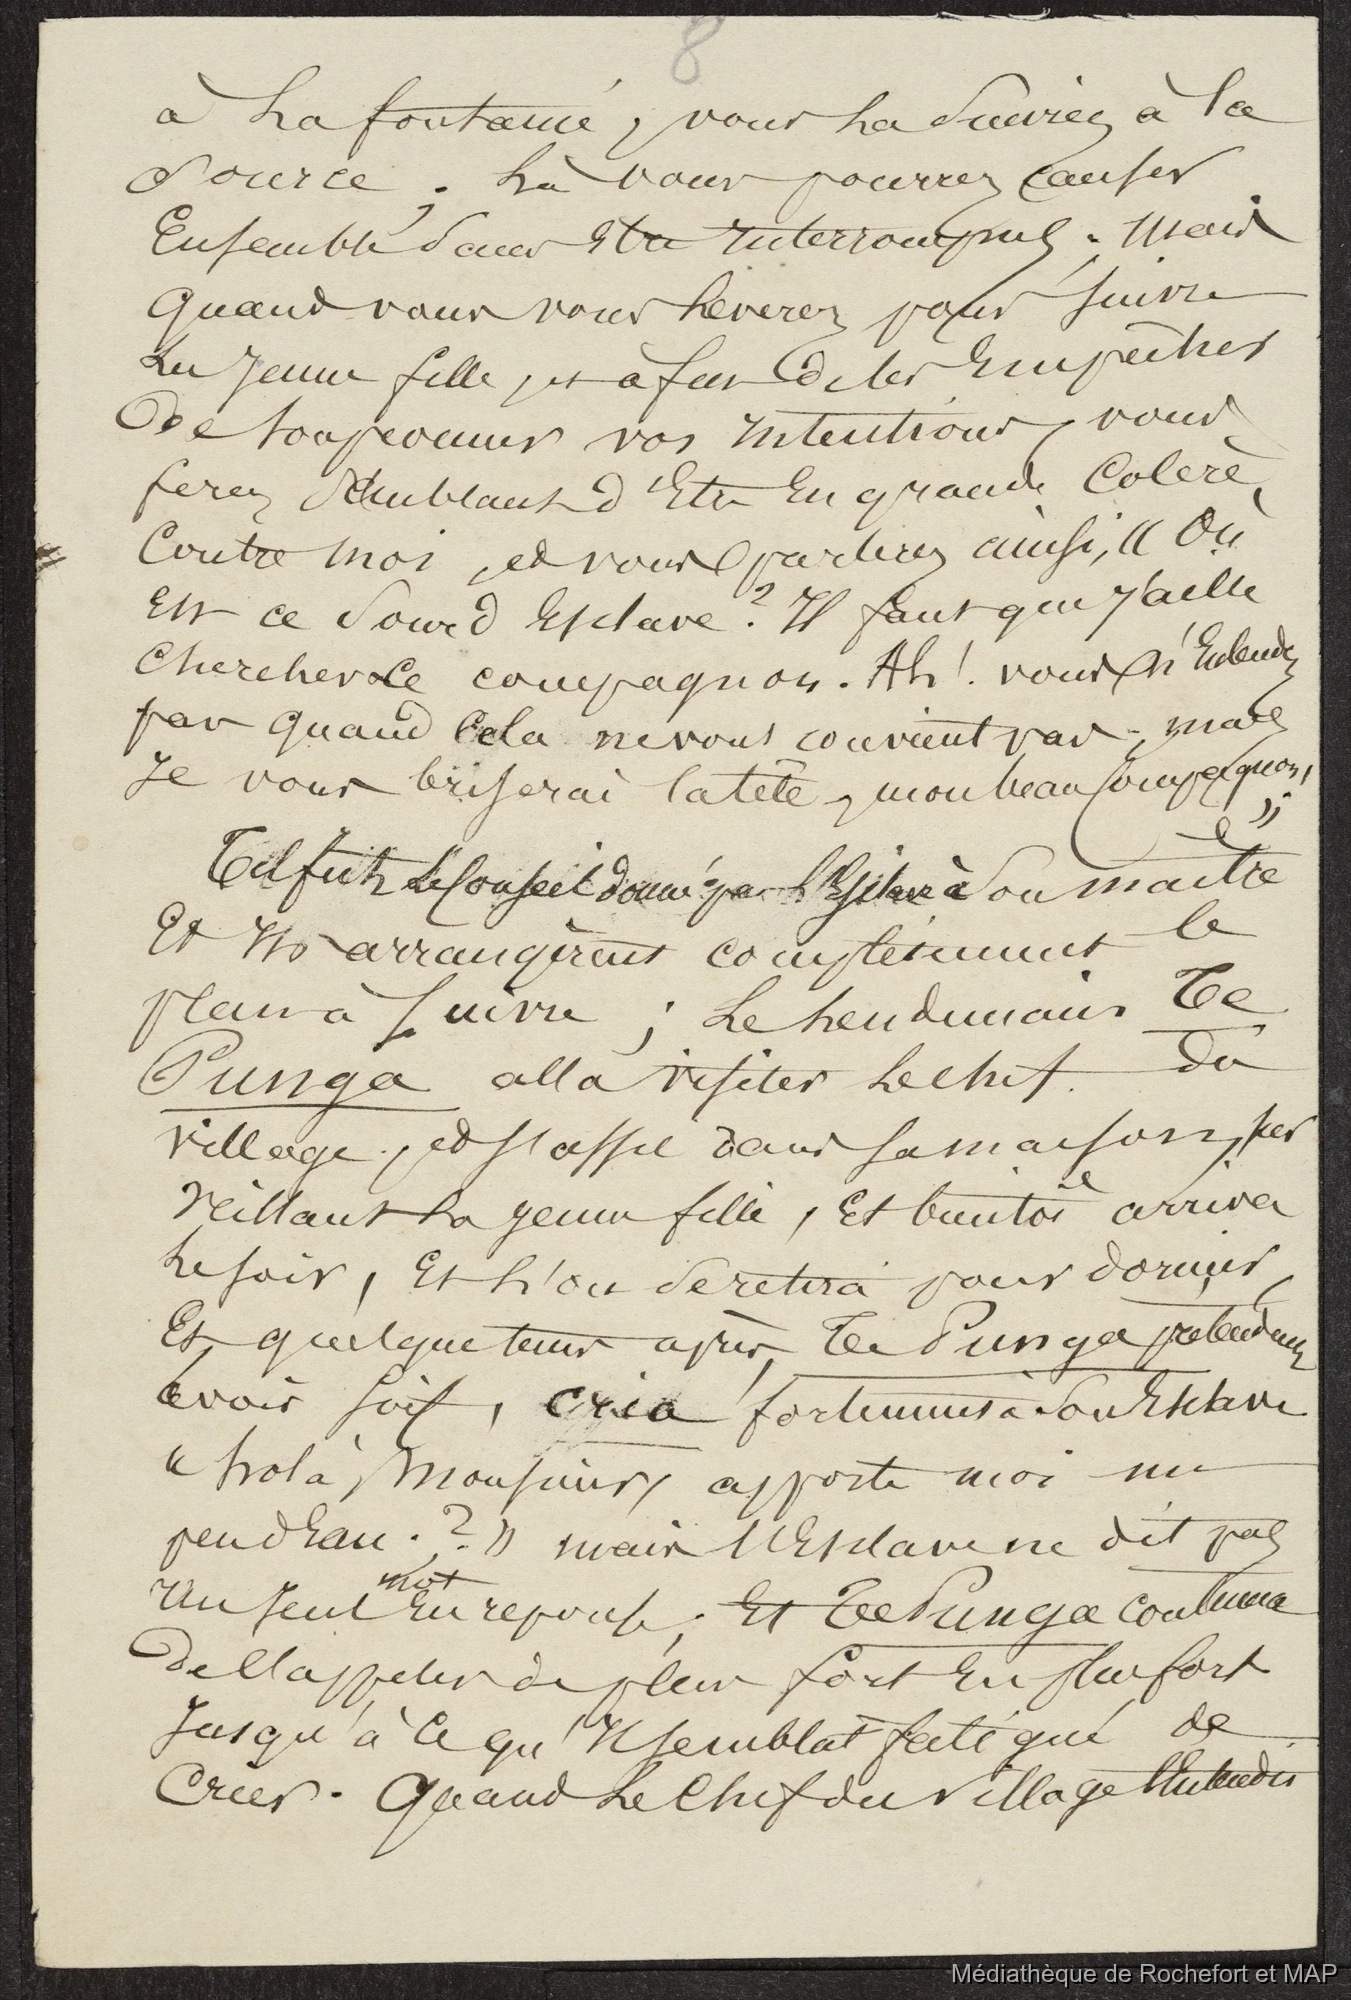 8
à La fontaine, vous La Suivrez à la
Source ; Là vous pourrez causer
Ensemble Sans Etre Interrompus. Mais
Quand vous vous Leverez pour suivre
La Jeune fille, et à fin de les Empêcher
De soupçonner vos Intentions, vous
ferez Semblant d'Etre En grande Colère,
Contre moi, et vous partirez ainsi, " Où
Est ce Sourd Esclave ? Il faut que J'aille
Chercher ce compagnon. Ah ! vous n'Entendez
pas quand Cela ne vous convient pas, mais
Je vous briserai la tête, mon beau Compagnon,
"
Tel fut Le Conseil donné par l'Esclave à Son maître
Et Ils arrangèrent complètement le
plan à suivre ; Le Lendemain Te
Punga alla visiter Le chef du
village, et s'assit dans sa maison, sur
veillant La Jeune fille, Et bientôt arriva
Le soir, Et L'on Se retira pour dormir,
Et quelque tems après, Te Punga prétendant
avoir soif, cria fortement à son Esclave
" holà, Monsieur, apporte moi un
peu d'Eau. ? " mais l'Esclave ne dit pas
Un seul mot En réponse, Et Te Punga continua
De l'appeler de plus fort En plus fort
Jusqu'à ce qu'Il semblat fatigué de
Crier. Quand Le Chef du village l'Entendit
Médiathèque de Rochefort et MAP